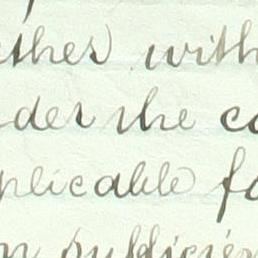 ether with
der the co
plicable fo
n sufficien